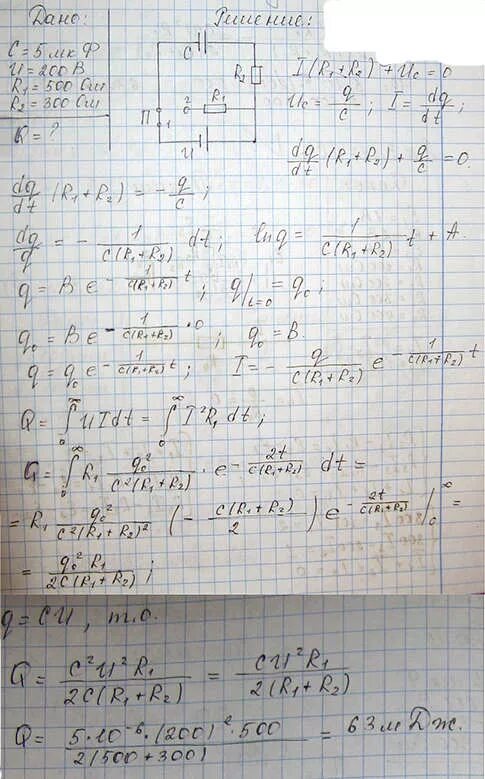 Дано: Решение:
C = 5 мк Ф
U = 200 В
R₁ = 500 Ом
R₂ = 300 Ом
Q = ?
C R₂ R₁ 2 П 1 U
I(R₁+R₂) + Uc = 0
Uc = q/c ; I = dq/dt ;
dq/dt (R₁+R₂) + q/c = 0.
dq/dt (R₁+R₂) = - q/c ;
dq/q = - 1/(C(R₁+R₂)) dt ; ln q = 1/(C(R₁+R₂)) t + A.
q = B e^(- 1/(C(R₁+R₂)) t) ; q|t=0 = q₀ ;
q₀ = B e^(- 1/(C(R₁+R₂)) · 0) ; q₀ = B.
q = q₀ e^(- 1/(C(R₁+R₂)) t) ; I = - q/(C(R₁+R₂)) e^(- 1/(C(R₁+R₂)) t)
Q = ∫₀^∞ UI dt = ∫₀^∞ I² R₁ dt ;
Q = ∫₀^∞ R₁ q₀²/(C²(R₁+R₂)) · e^(- 2t/(C(R₁+R₂))) dt =
= R₁ q₀²/(C²(R₁+R₂)²) (- C(R₁+R₂)/2) e^(- 2t/(C(R₁+R₂))) |₀^∞ =
= q₀² R₁/(2C(R₁+R₂)) ;
q = CU, т.о.
Q = C²U²R₁/(2C(R₁+R₂)) = CU²R₁/(2(R₁+R₂))
Q = 5·10⁻⁶·(200)²·500/(2(500+300)) = 63 м Дж.